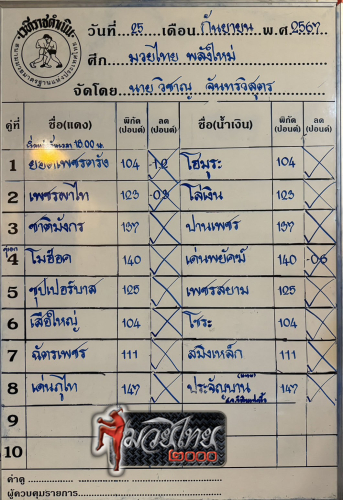 เวทีราชดำเนิน
วันที่ 25 เดือน กันยายน พ.ศ. 2567
ศึก มวยไทย พลังใหม่
จัดโดย นายวิชาญ จันทรวิสุตร
คู่ที่ ชื่อ(แดง) พิกัด (ปอนด์) ลด (ปอนด์) ชื่อ(น้ำเงิน) พิกัด (ปอนด์) ลด (ปอนด์)
1 ยอดเพชรตรัง 104 -1.2 โฮมุระ 104
2 เพชรผาไท 123 -0.3 ไล่เงิน 123
3 ชาติมังกร 137 ปานเพชร 137
คู่เอก
4 โมฮ็อค 140 เด่นพยัคฆ์ 140 -0.6
5 ซุปเปอร์บาส 125 เพชรสยาม 125
6 เสือใหญ่ 104 โซระ 104
7 ฉัตรเพชร 111 สมิงเหล็ก 111
8 เด่นภูไท 147 ประจัญบาน 147
9
10
ค่าดู
ผู้ควบคุมรายการ
มวยไทย
๒๐๐๐